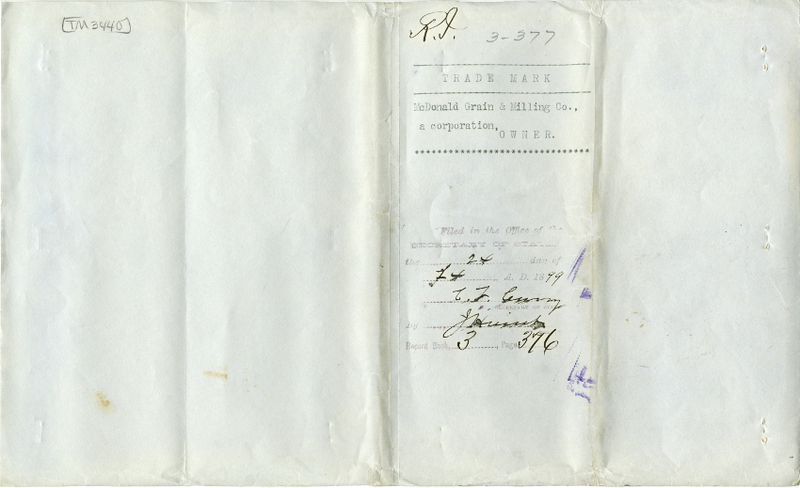 TM3440
R.I. 3-377
TRADE MARK
McDonald Grain & Milling Co.,
a corporation,
OWNER.
****************************************
Filed in the Office of the
SECRETARY OF STATE
the 24 day of
A. D. 1899
C. F. Curry
SECRETARY OF STATE
By
Record Book, 3, Page 376